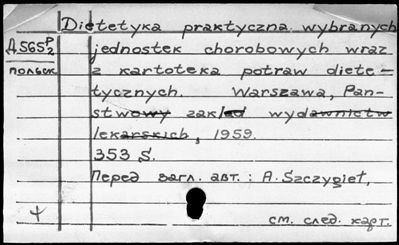 Dietetyka praktyczna wybranych
Д565Р/2 jednostek chorobowych wraz
польск z kartoteka potraw diete-
tycznych. Warszawa, Pań-
stwowy zakład wydawnictw
lekarskich, 1959.
353 S.
Перед загл. авт.: A. Szczygieł,
см. след. карт.